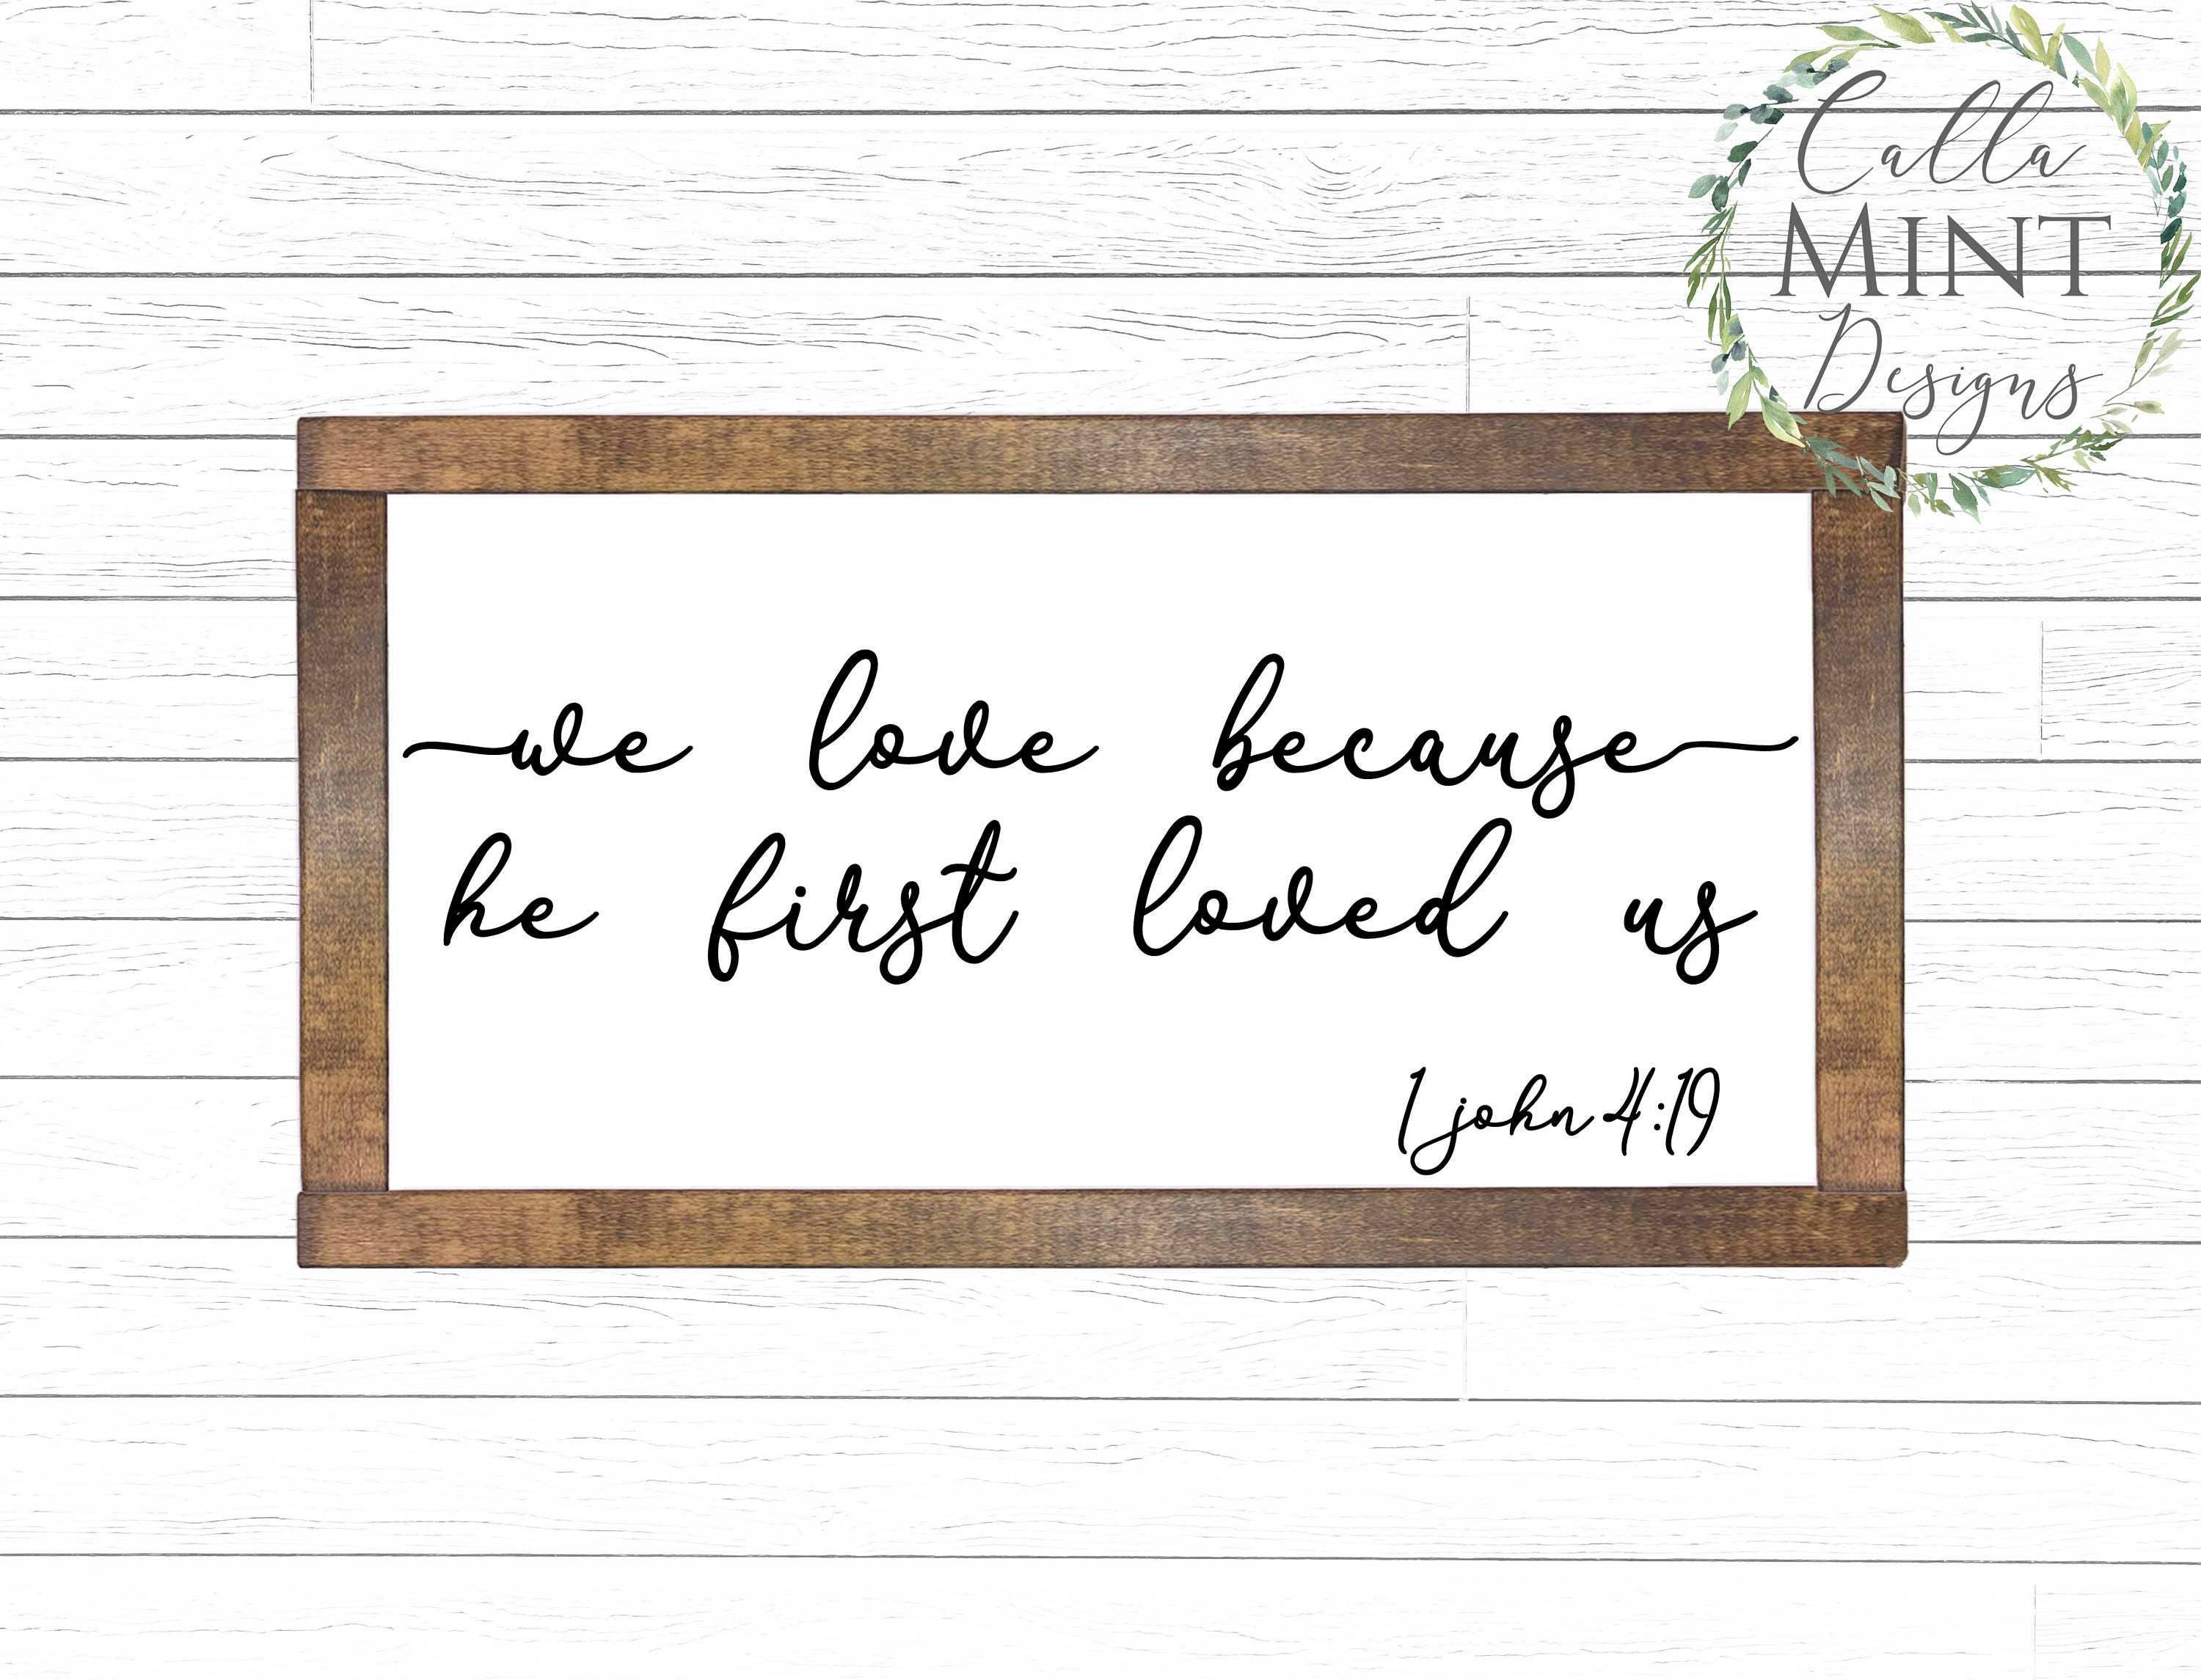 Calla
MINT
Designs
we love because
he first loved us
1 john 4:19